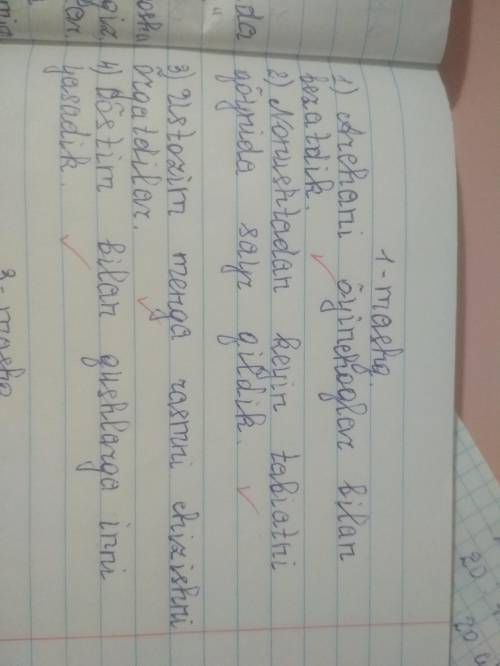 1-mashq.
1) Archani õyinchoqlar bilan
bezatdik.
2) Nonushtadan keyin tabiatni
qõynida sayr qildik.
3) Ustozim menga rasmni chizishni
õrgatdilar.
4) Dõstim bilan qushlarga inni
yasadik.
2-mashq
da
20
20